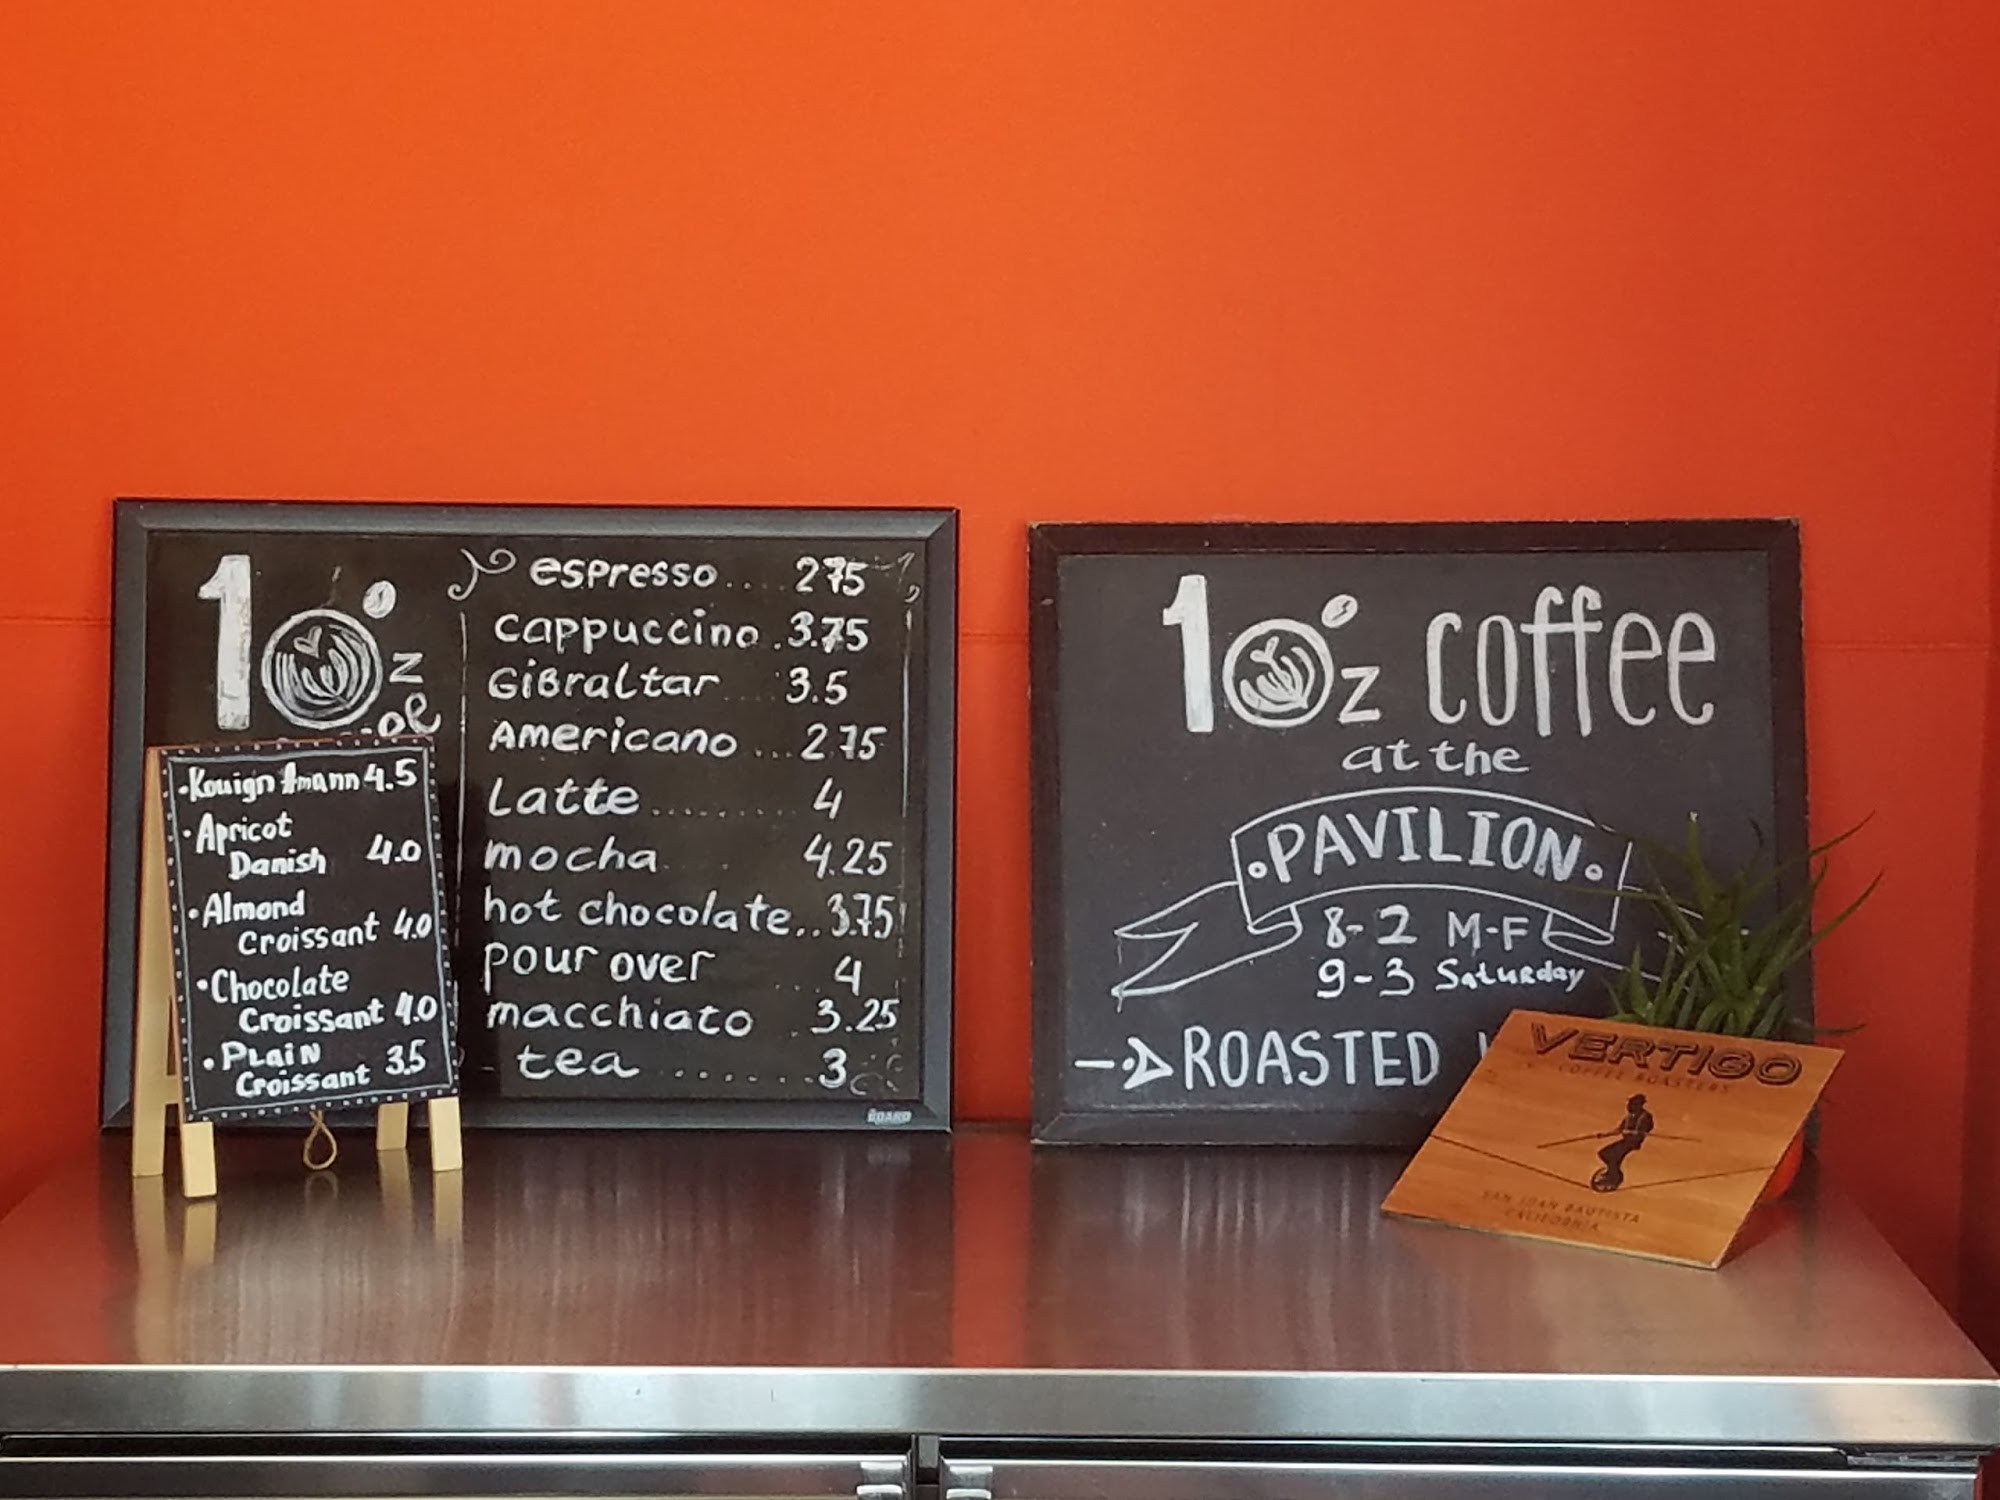 10z
espresso.... 2.75
cappuccino.3.75
Gibraltar 3.5
Americano...2.75
Latte....... 4
mocha 4.25
hot chocolate..3.75
pour over ... 4
macchiato . 3.25
tea ...... 3
BOARD
•Kouign Amann 4.5
•Apricot
Danish 4.0
•Almond
Croissant 4.0
•Chocolate
Croissant 4.0
•Plain
Croissant 3.5
10z coffee
at the
•PAVILION•
8-2 M-F
9-3 Saturday
ROASTED
VERTIGO
COFFEE ROASTERS
SAN JUAN BAUTISTA
CALIFORNIA